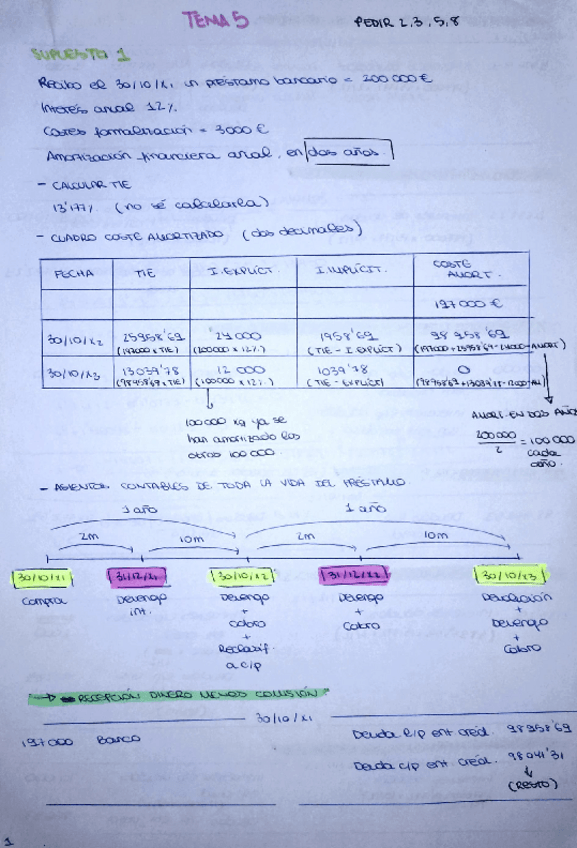 TEMA 5
PEDIR 2,3,5,8
SUPUESTO 1
Recibo el 30/10/X1 un préstamo bancario = 200 000 €
Interés anual 12%
Costes formalización = 3000 €
Amortización financiera anual, en dos años.
- CALCULAR TIE
13'177% (no sé calcularla)
- CUADRO COSTE AMORTIZADO (dos decimales)
FECHA TIE I. EXPLÍCT. I. IMPLÍCIT. COSTE AMORT.
197000 €
30/10/X2 25958'69 24000 1958'69 98958'69
(197000 x TIE) (200000 x 12%) (TIE - I EXPLÍCT) (197000+25958'69-24000-AMORT)
30/10/X3 13039'78 12 000 1039'78 0
(98958'69 x TIE) (100 000 x 12%) (TIE - EXPLÍCT)
100 000 xq ya se
han amortizado los
otros 100 000
AMORT. EN DOS AÑOS
200 000 / 2 = 100 000
cada
año.
- ASIENTOS CONTABLES DE TODA LA VIDA DEL PRÉSTAMO
1 año 1 año
2m 10m 2m 10m
30/10/X1 31/12/X1 30/10/X2 31/12/X2 30/10/X3
Compra Devengo int. Devengo + Cobro + Reclasif. a c/p Devengo + Cobro Devolución + Devengo + Cobro
"→ RECEPCIÓN DINERO MENOS COMISIÓN"
30/10/X1
197 000 Banco
Deuda l/p ent créd. 98958'69
Deuda c/p ent créd. 98041'31
(RESTO)
1